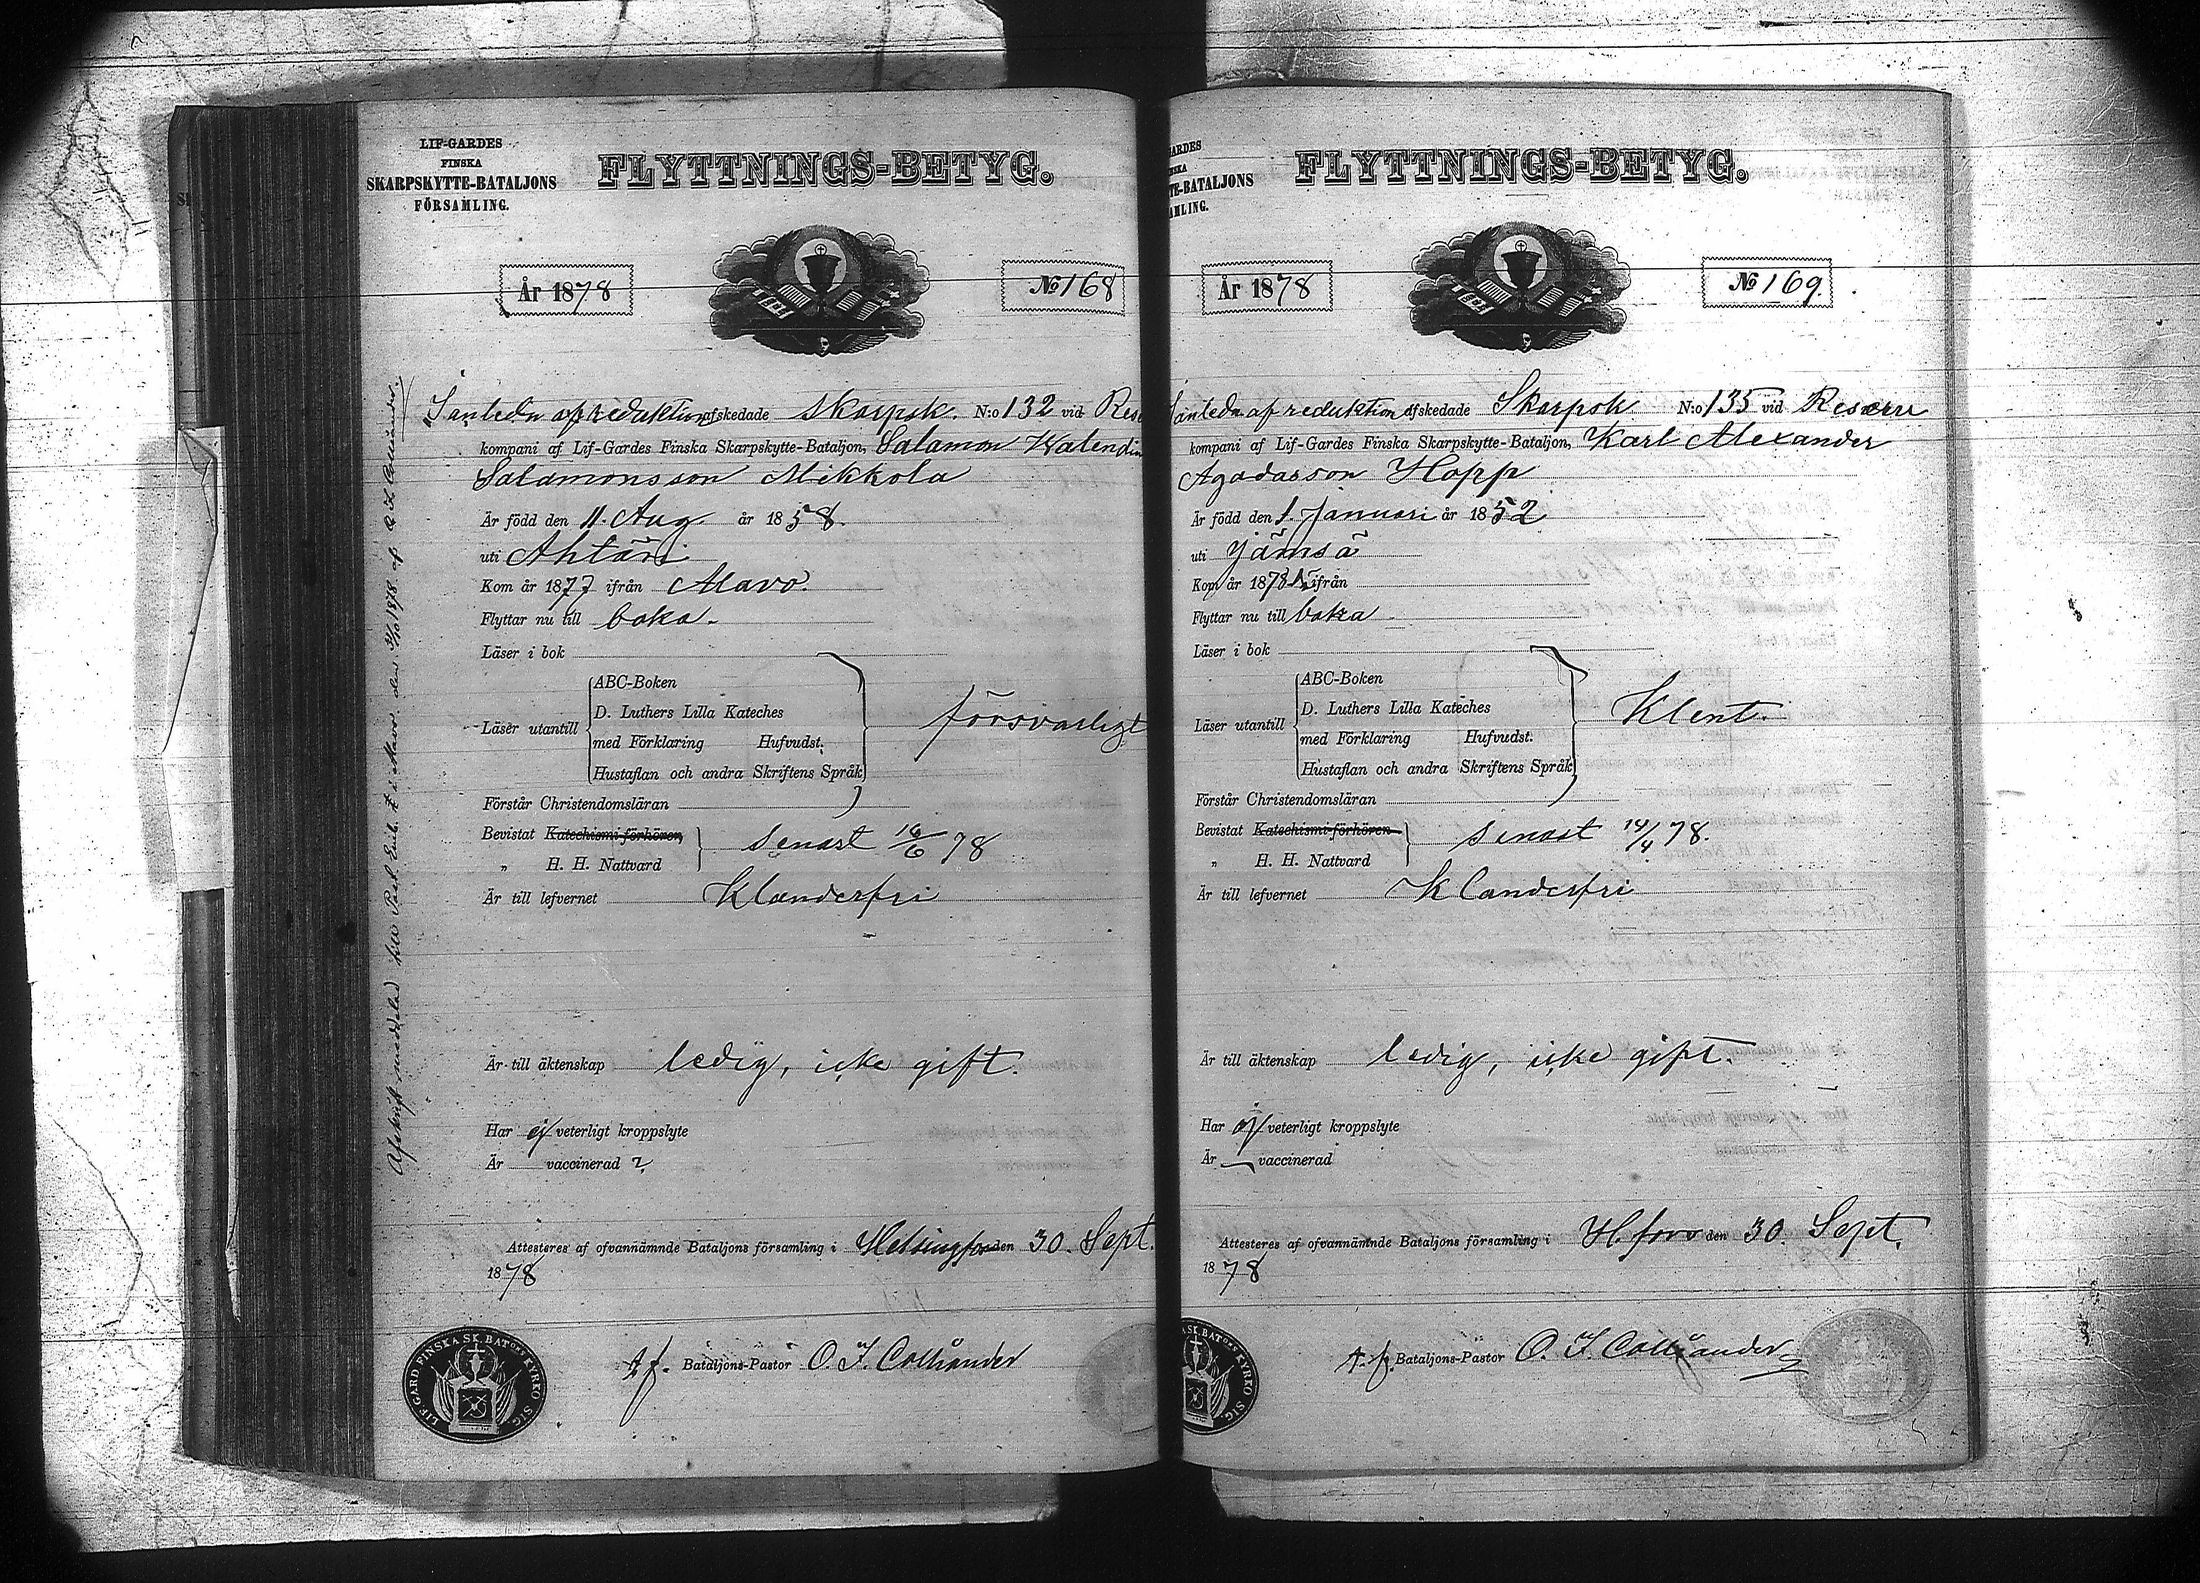 LIF-GARDES
FINSKA
SKARPSKYTTE-BATALJONS
FÖRSAMLING.
FLYTTNINGS-BETYG.
År 1878
No 168
afskedade Skarpsk. N:o 132 vid Rese
kompani af Lif-Gardes Finska Skarpskytte-Bataljon, Salamon Walendin
Salamonsson Mikkola
Är född den 11. Aug. år 1858.
uti
Kom år 1877 ifrån Alavo.
Flyttar nu till
Läser i bok
ABC-Boken
D. Luthers Lilla Kateches
Läser utantill med Förklaring Hufvudst. försvarligt
Hustaflan och andra Skriftens Språk
Förstår Christendomsläran
Bevistat Katechismi-förhören,
senast 16/6 78
„ H. H. Nattvard
Är till lefvernet Klanderfri
Är till äktenskap ledig, icke gift.
Har ej veterligt kroppslyte
Är vaccinerad ?
Attesteres af ofvannämnde Bataljons församling i Helsingfors den 30. Sept.
1878
LIF-GARD FINSKA SK. BAT:ONS KYRKO SIG.
t. f. Bataljons-Pastor O. I. Colliander
ARDES
TE-BATALJONS
MLING.
FLYTTNINGS-BETYG.
År 1878
No 169.
af reduktion afskedade Skarpsk N:o 135 vid Reserv
kompani af Lif-Gardes Finska Skarpskytte-Bataljon, Karl Alexander
Hopp
Är född den 1. Januari år 1852
uti Jämsä
Kom år 1878 ifrån
Flyttar nu till
Läser i bok
ABC-Boken
D. Luthers Lilla Kateches
Läser utantill med Förklaring Hufvudst. Klent.
Hustaflan och andra Skriftens Språk
Förstår Christendomsläran
Bevistat Katechismi-förhören
senast 14/4 78.
„ H. H. Nattvard
Är till lefvernet Klanderfri
Är till äktenskap ledig, icke gift.
Har ej veterligt kroppslyte
Är vaccinerad
Attesteres af ofvannämnde Bataljons församling i H.fors den 30. Sept.
1878
SK. BAT:ONS KYRKO SIG.
t. f. Bataljons-Pastor O. I. Colliander